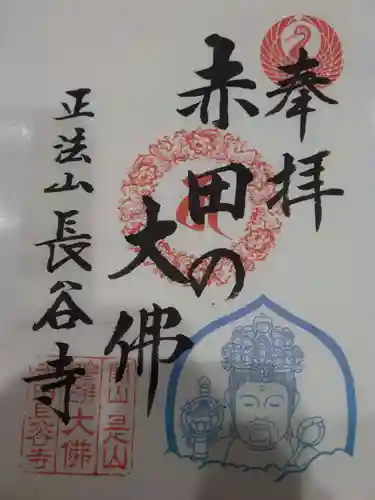 奉拝
赤田の
大佛
正法山
長谷寺
開山 是山
大佛
長谷寺